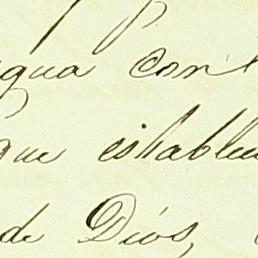 agua con
que establec
de Dios,